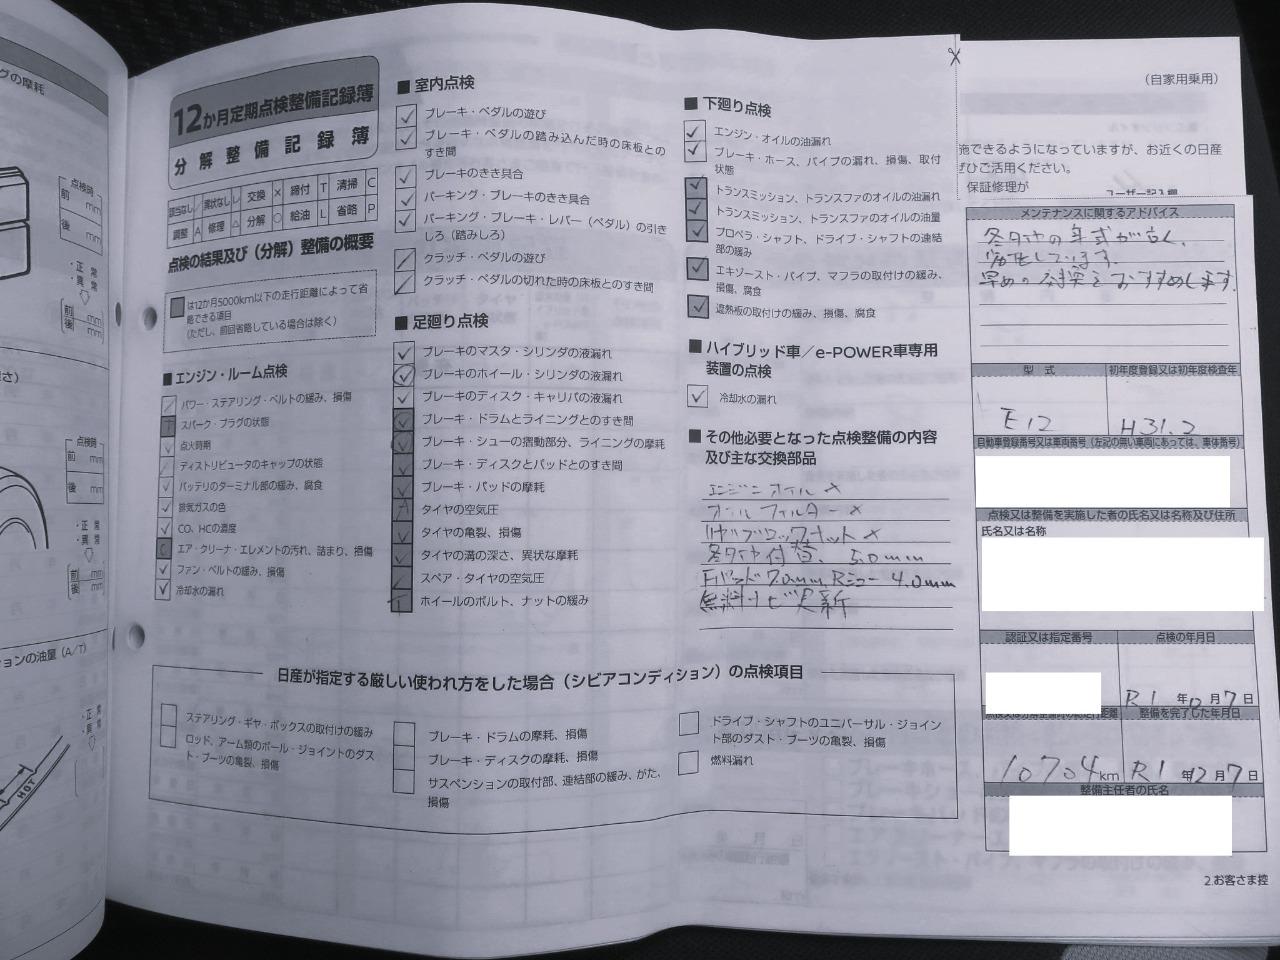 グの摩耗
点検時
前 mm
後 mm
・正 常
・異 常
前 mm
後 mm
さ）
点検時
前 mm
後 mm
・正 常
・異 常
前 mm
後 mm
ションの油量（A/T）
・正 常
・異 常
HOT
12か月定期点検整備記録簿
分解整備記録簿
該当なし ／ 異状なし レ 交換 × 締付 T 清掃 C
調整 A 修理 △ 分解 ○ 給油 L 省略 P
点検の結果及び（分解）整備の概要
は12か月5000km以下の走行距離によって省
略できる項目
（ただし、前回省略している場合は除く）
■ エンジン・ルーム点検
パワー・ステアリング・ベルトの緩み、損傷
T スパーク・プラグの状態
点火時期
ディストリビュータのキャップの状態
バッテリのターミナル部の緩み、腐食
排気ガスの色
CO、HCの濃度
C エア・クリーナ・エレメントの汚れ、詰まり、損傷
ファン・ベルトの緩み、損傷
冷却水の漏れ
■ 室内点検
ブレーキ・ペダルの遊び
ブレーキ・ペダルの踏み込んだ時の床板との
すき間
ブレーキのきき具合
パーキング・ブレーキのきき具合
パーキング・ブレーキ・レバー（ペダル）の引き
しろ（踏みしろ）
クラッチ・ペダルの遊び
クラッチ・ペダルの切れた時の床板とのすき間
■ 足廻り点検
ブレーキのマスタ・シリンダの液漏れ
ブレーキのホイール・シリンダの液漏れ
ブレーキのディスク・キャリパの液漏れ
ブレーキ・ドラムとライニングとのすき間
ブレーキ・シューの摺動部分、ライニングの摩耗
ブレーキ・ディスクとパッドとのすき間
ブレーキ・パッドの摩耗
A タイヤの空気圧
タイヤの亀裂、損傷
タイヤの溝の深さ、異状な摩耗
スペア・タイヤの空気圧
T ホイールのボルト、ナットの緩み
■ 下廻り点検
エンジン・オイルの油漏れ
ブレーキ・ホース、パイプの漏れ、損傷、取付
状態
トランスミッション、トランスファのオイルの油漏れ
トランスミッション、トランスファのオイルの油量
プロペラ・シャフト、ドライブ・シャフトの連結
部の緩み
エキゾースト・パイプ、マフラの取付けの緩み、
損傷、腐食
遮熱板の取付けの緩み、損傷、腐食
■ ハイブリッド車／e-POWER車専用
装置の点検
冷却水の漏れ
■ その他必要となった点検整備の内容
及び主な交換部品
エンジンオイル ×
オイルフィルター ×
各タイヤ付替、5.0mm
Fパッド7.0mm、Rシュー 4.0mm
無料ナビ更新
日産が指定する厳しい使われ方をした場合（シビアコンディション）の点検項目
ステアリング・ギヤ・ボックスの取付けの緩み
ロッド、アーム類のボール・ジョイントのダス
ト・ブーツの亀裂、損傷
ブレーキ・ドラムの摩耗、損傷
ブレーキ・ディスクの摩耗、損傷
サスペンションの取付部、連結部の緩み、がた、
損傷
ドライブ・シャフトのユニバーサル・ジョイン
ト部のダスト・ブーツの亀裂、損傷
燃料漏れ
（自家用乗用）
施できるようになっていますが、お近くの日産
ぜひご活用ください。
保証修理が
ユーザー記入欄
メンテナンスに関するアドバイス
各タイヤの年式が古く、
劣化しています。
早めの交換をおすすめします。
型 式 初年度登録又は初年度検査年
E12 H31.2
自動車登録番号又は車両番号（左記の無い車両にあっては、車体番号）
点検又は整備を実施した者の氏名又は名称及び住所
氏名又は名称
認証又は指定番号 点検の年月日
R1 年 月 7 日
整備を完了した年月日
10704 km R1 年 月 7 日
整備主任者の氏名
2.お客さま控